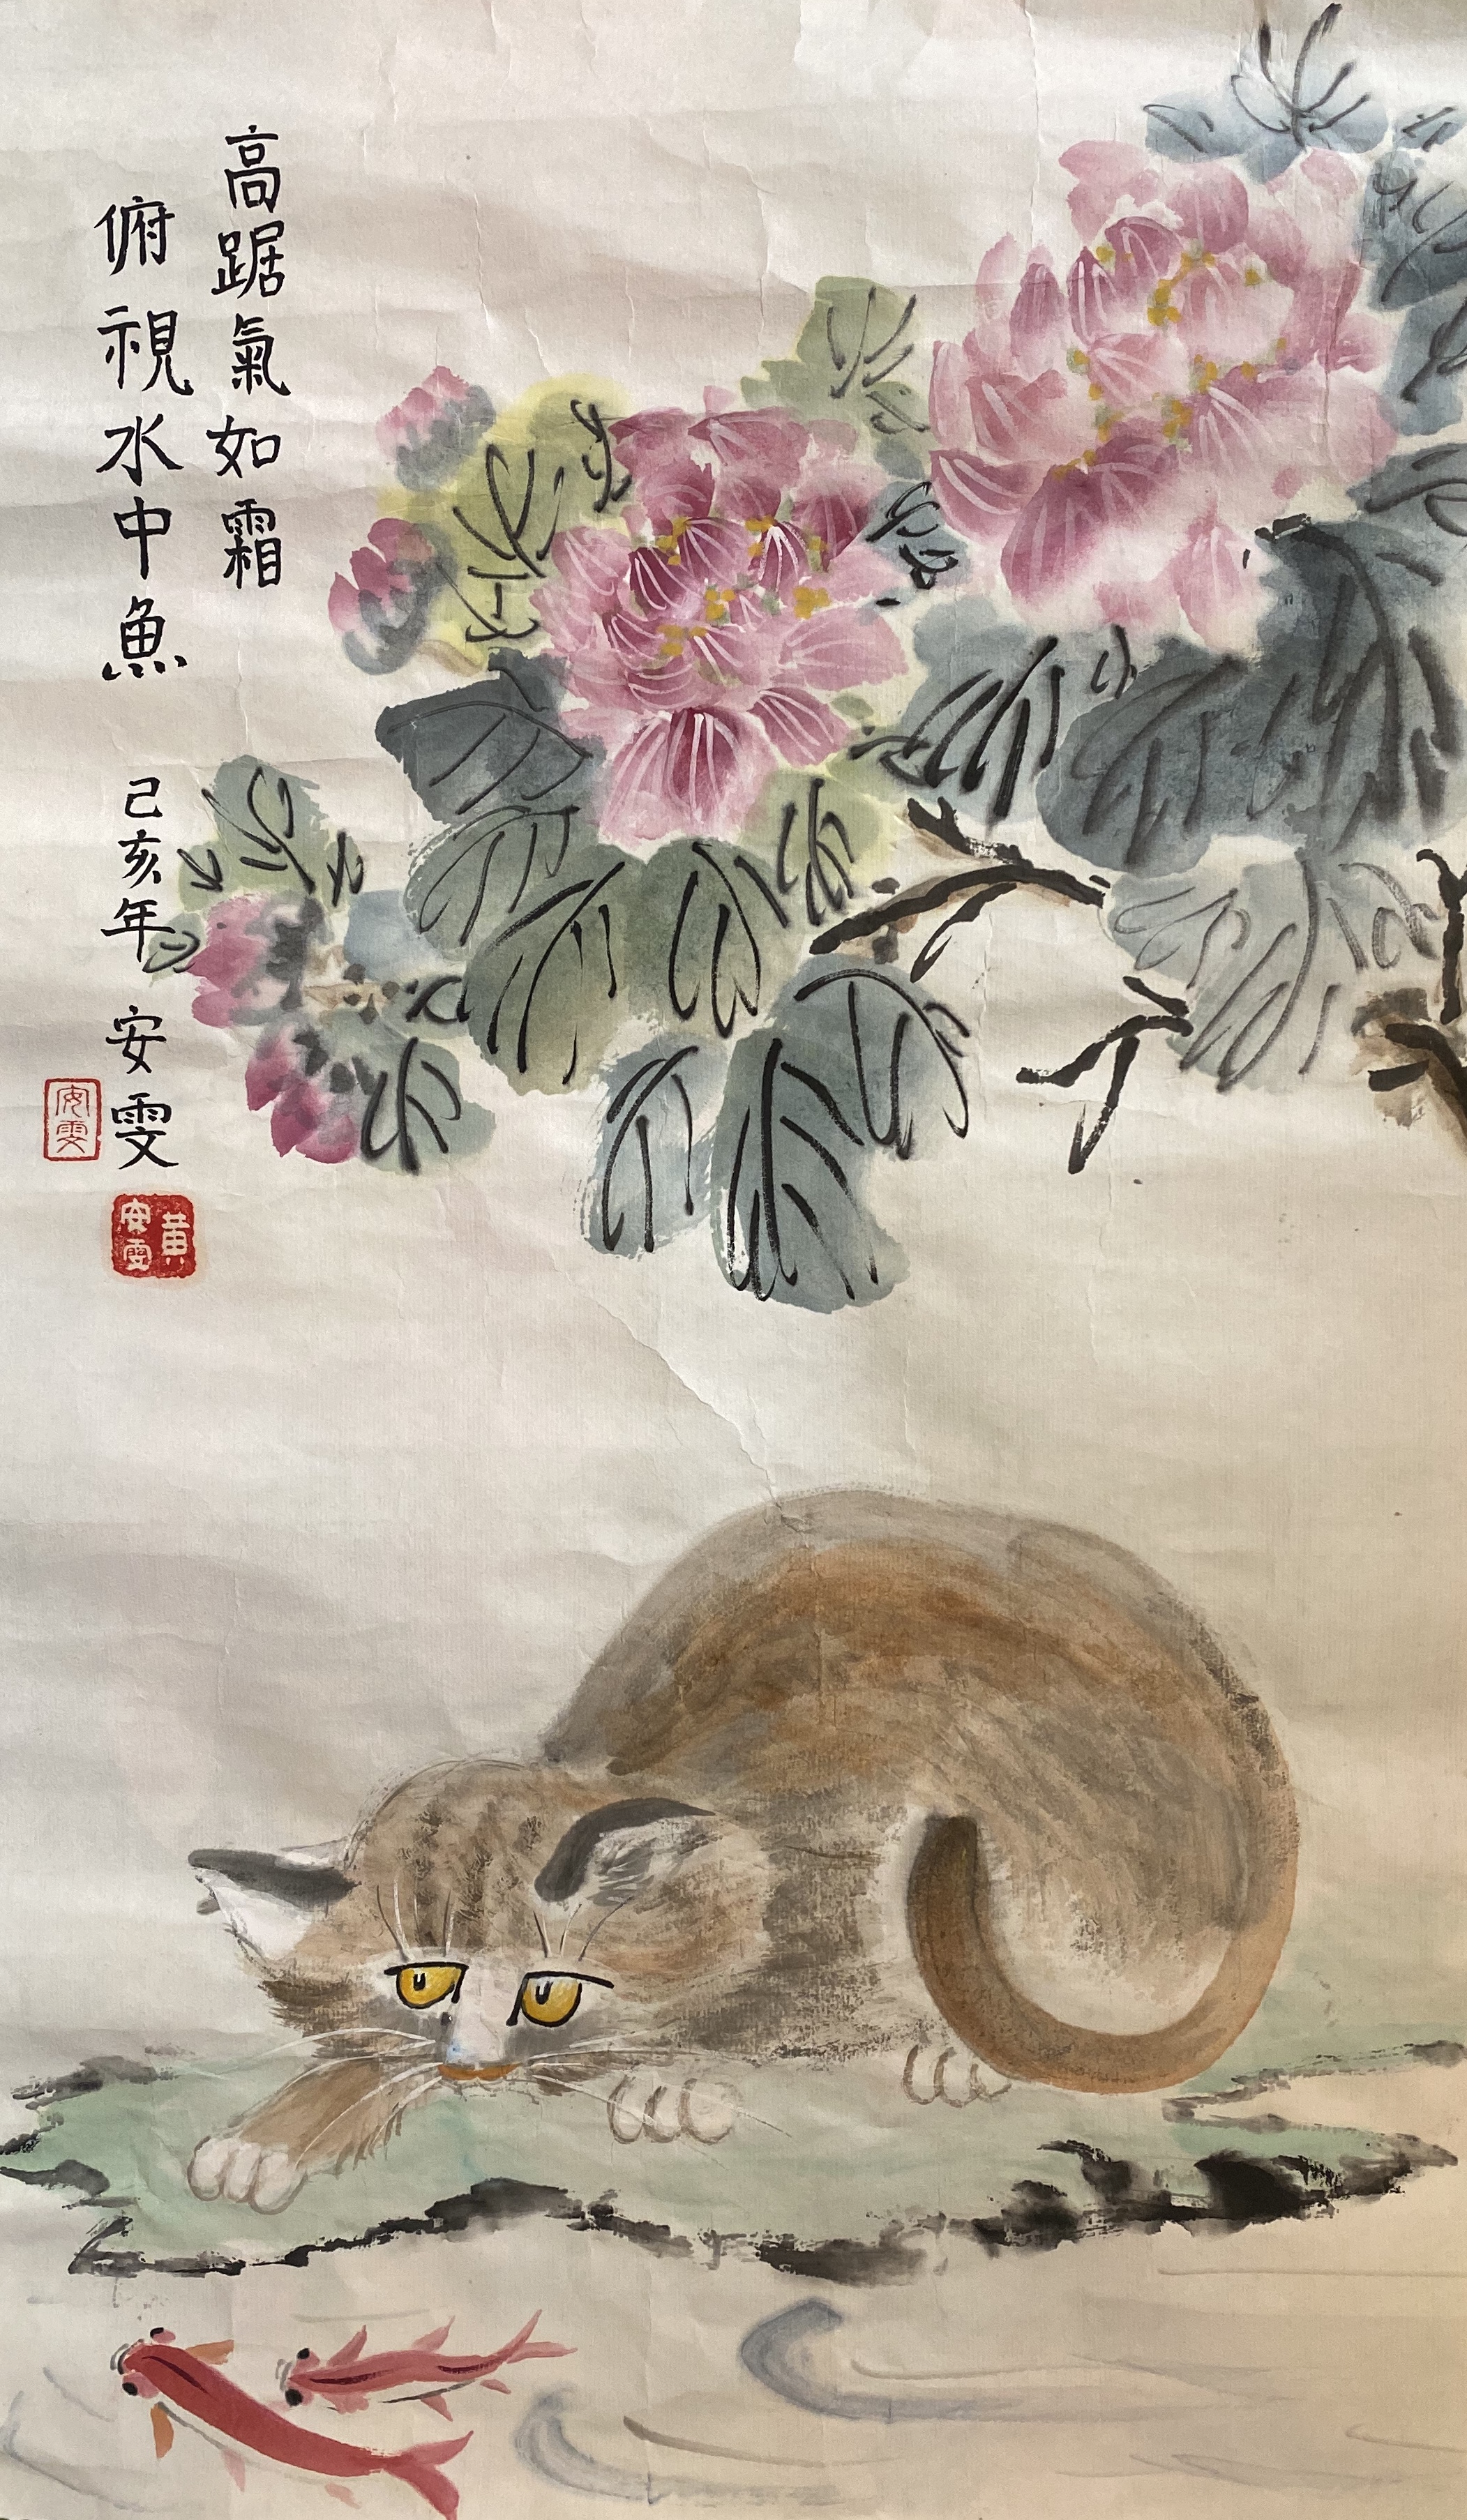 高踞氣如霜
俯視水中魚
己亥年 安雯
安雯
黃安雯